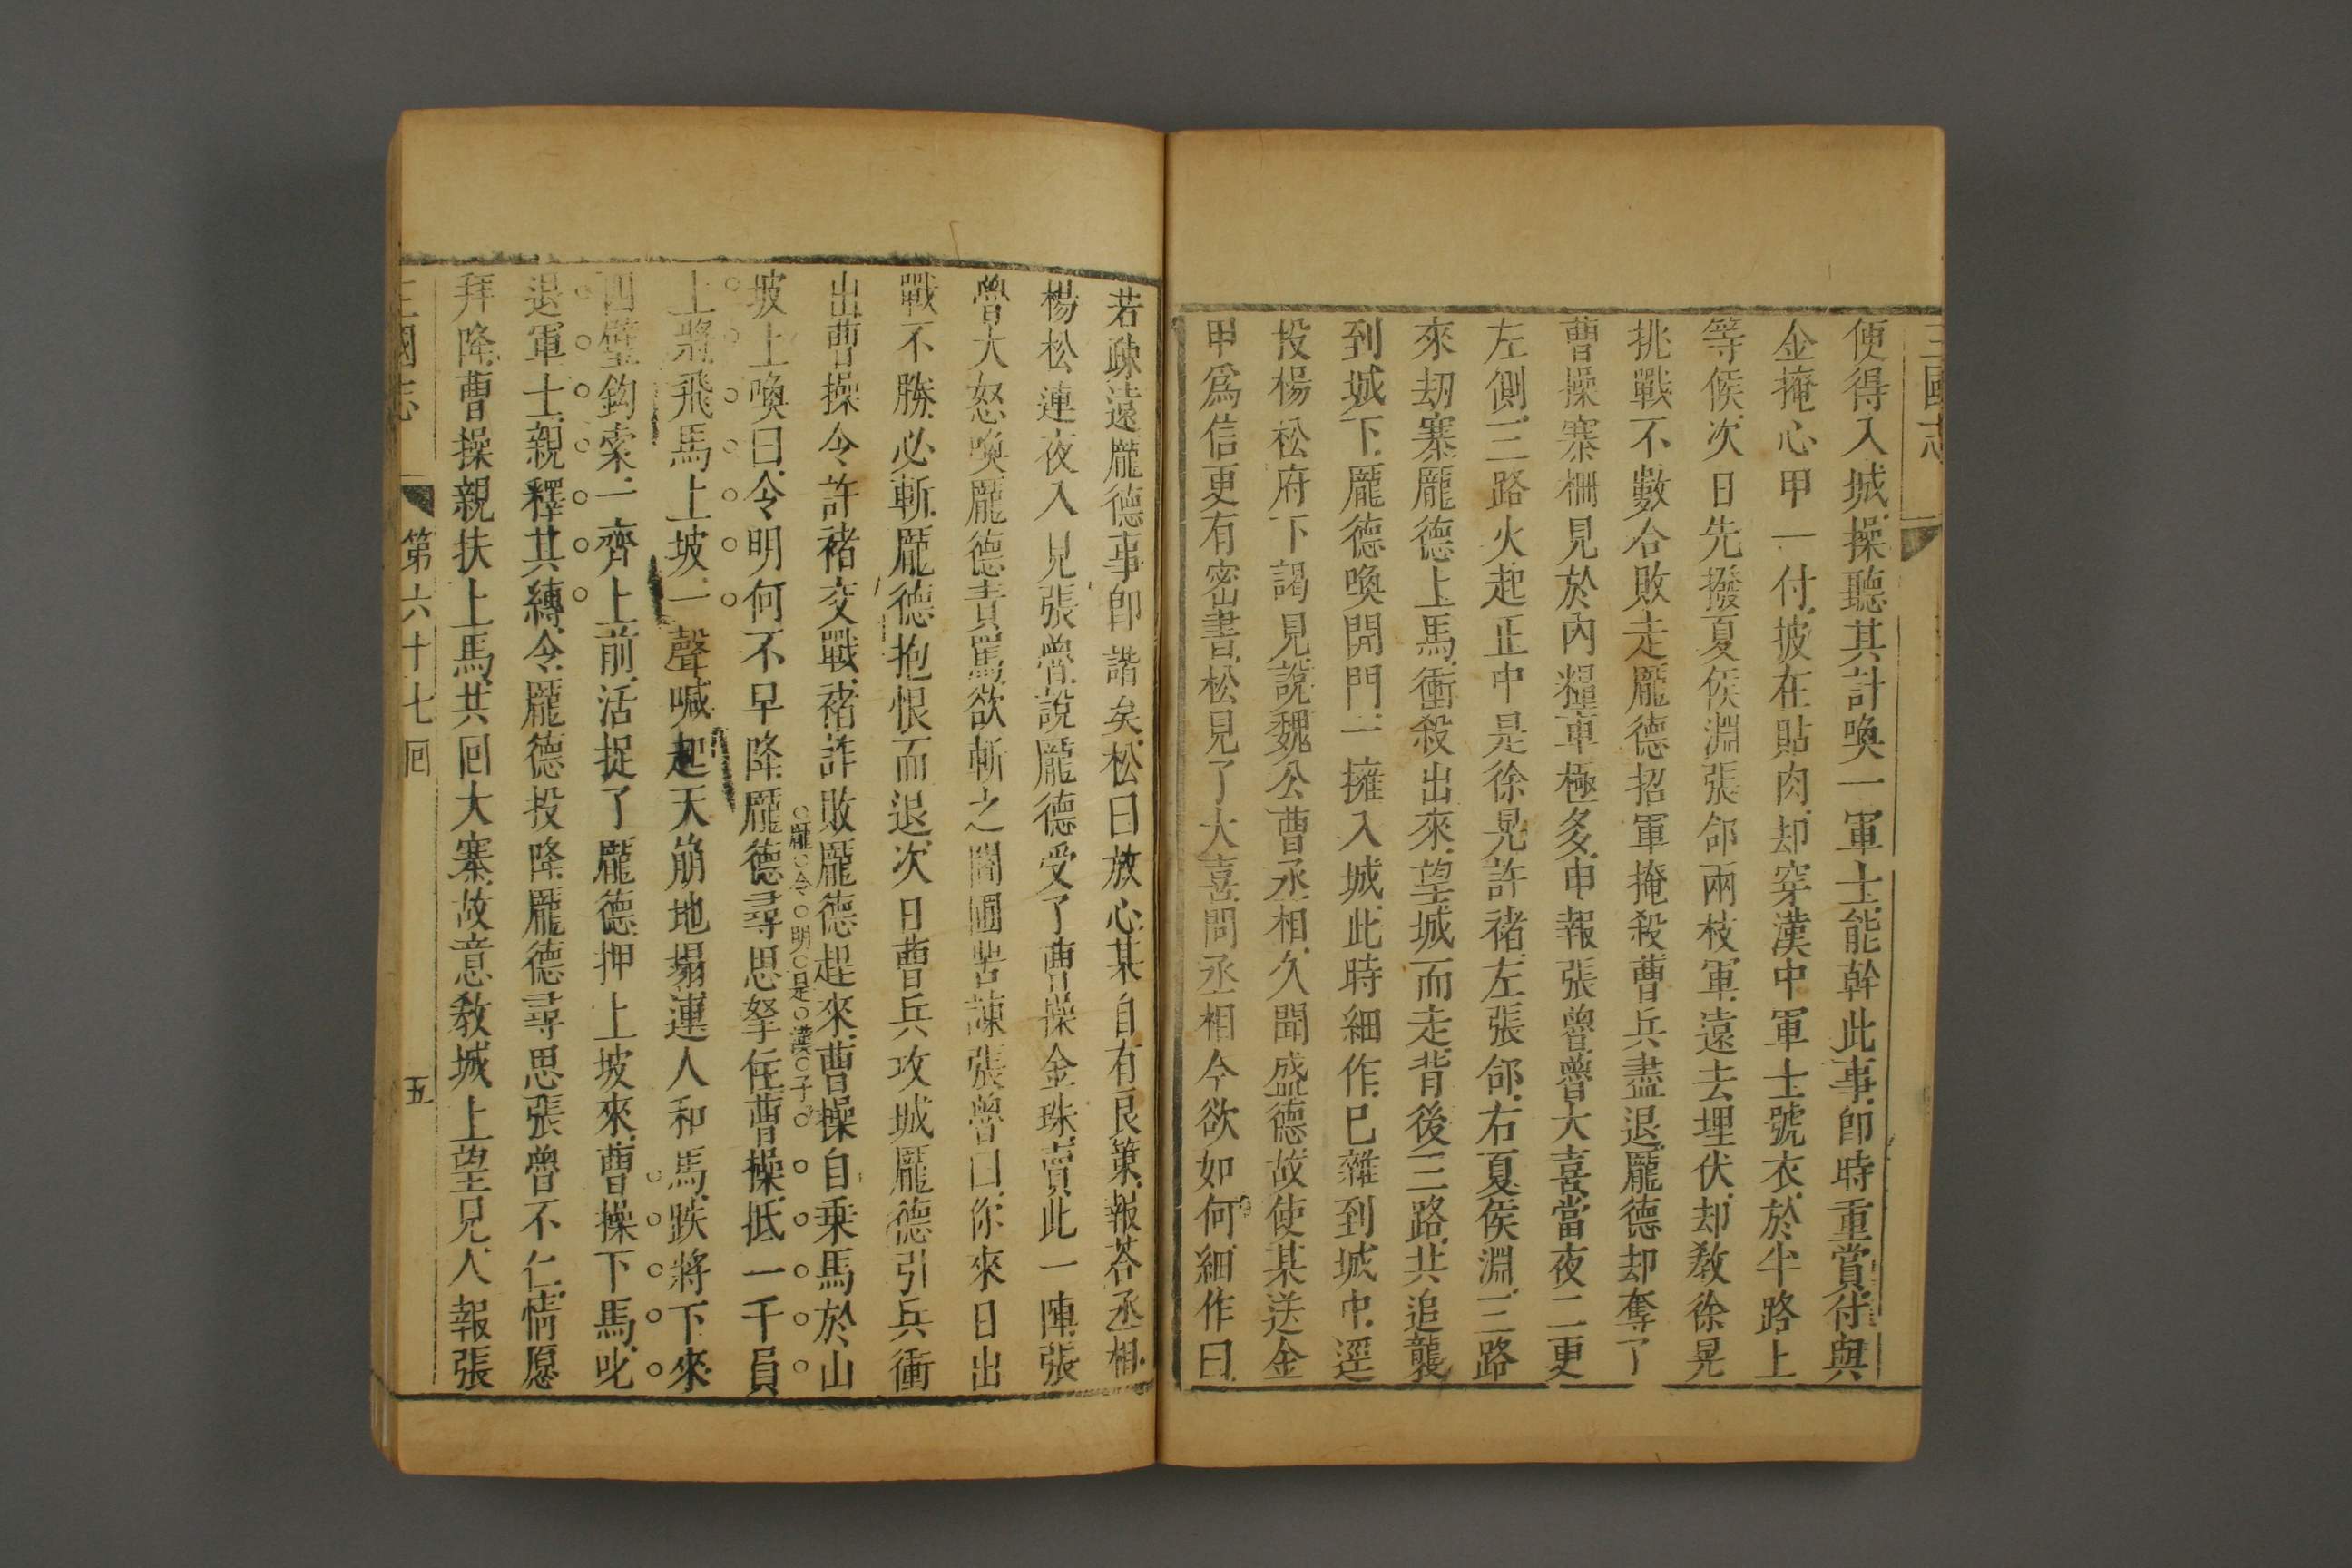 三國志
便得入城操聽其計喚一軍士能幹此事卽時重賞付與
金掩心甲一付披在貼肉却穿漢中軍士號衣於半路上
等候次日先撥夏侯淵張郃兩枝軍遠去埋伏却敎徐晃
挑戰不數合敗走龐德招軍掩殺曹兵盡退龐德却奪了
曹操寨柵見於內糧車極多申報張魯魯大喜當夜二更
左側三路火起正中是徐晃許褚左張郃右夏侯淵三路
來刼寨龐德上馬衝殺出來望城而走背後三路共追襲
到城下龐德喚開門一擁入城此時細作巳雜到城中逕
投楊松府下謁見說魏公曹丞相久聞盛德故使某送金
甲爲信更有密書松見了大喜問丞相今欲如何細作曰
若疎遠龐德事卽諧矣松曰放心某自有良策報荅丞相
楊松連夜入見張魯說龐德受了曹操金珠賣此一陣張
魯大怒喚龐德責罵欲斬之閻圃苦諫張魯曰你來日出
戰不勝必斬龐德抱恨而退次日曹兵攻城龐德引兵衝
出曹操令許褚交戰褚詐敗龐德趕來曹操自乘馬於山
坡上喚曰令明何不早降龐德尋思拏住曹操抵一千員
龐令明是漢子
上將飛馬上坡一聲喊起天崩地塌連人和馬跌將下來
四壁鈎索一齊上前活捉了龐德押上坡來曹操下馬叱
退軍士親釋其縛令龐德投降龐德尋思張魯不仁情愿
拜降曹操親扶上馬共囘大寨故意敎城上望見人報張
三國志
第六十七囘
五